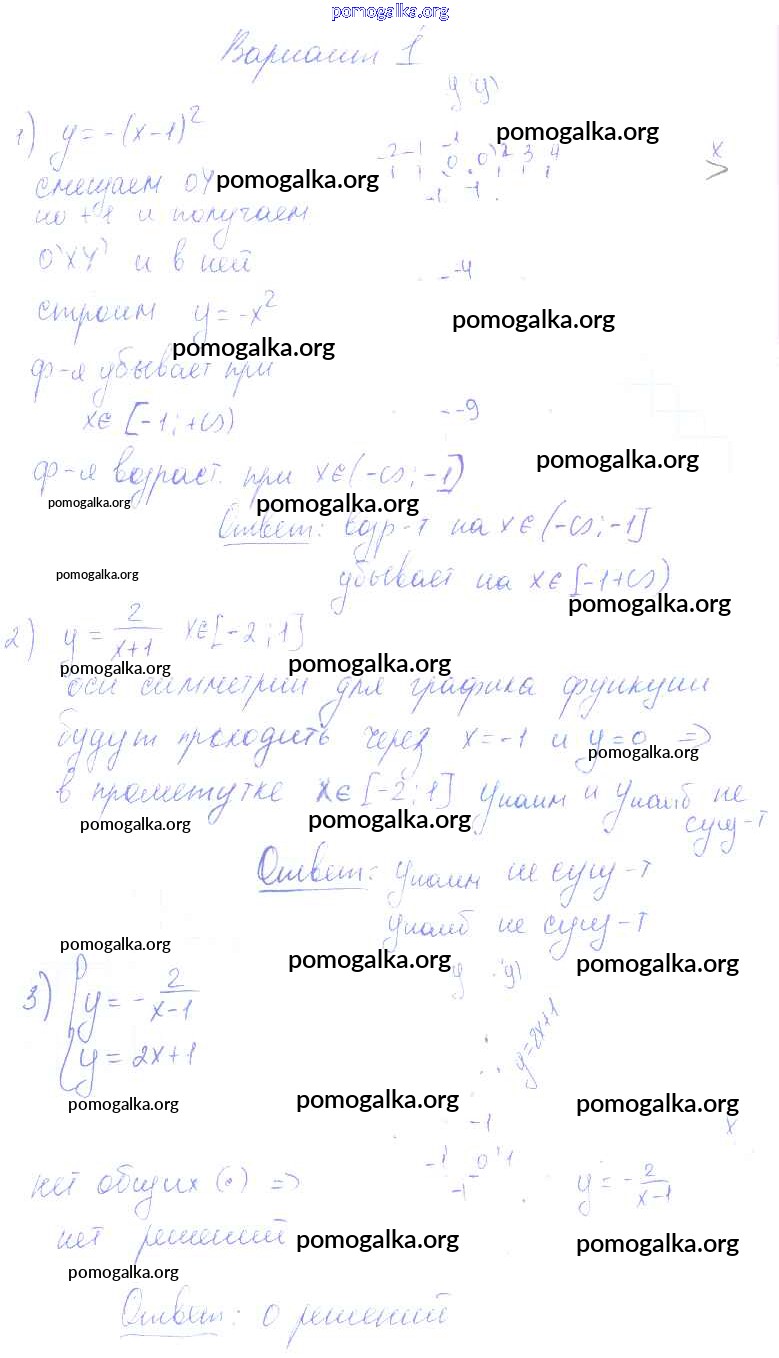 pomogalka.org
Вариант 1
1) y = -(x-1)²
pomogalka.org
y y)
-2 -1 0 0` 2 3 4 x
смещаем OY
pomogalka.org
по +1 и получаем
O`XY` и в ней
-4
строим y = -x²
pomogalka.org
pomogalka.org
ф-я убывает при
x∈ [-1; +∞)
-9
ф-я возраст. при x∈(-∞; -1]
pomogalka.org
pomogalka.org
pomogalka.org
Ответ: возр-т на x∈(-∞; -1]
pomogalka.org
убывает на x∈[-1+∞)
pomogalka.org
2) y = 2/(x+1) x∈[-2; 1]
pomogalka.org
pomogalka.org
оси симметрии для графика функции
будут проходить через x = -1 и y = 0 =>
pomogalka.org
в промежутке x∈[-2; 1] yнаим и yнаиб не
сущ-т
pomogalka.org
pomogalka.org
Ответ: yнаим не сущ-т
yнаиб не сущ-т
pomogalka.org
pomogalka.org
pomogalka.org
y y)
3) { y = - 2/(x-1)
y = 2x+1
y=2x+1
pomogalka.org
pomogalka.org
pomogalka.org
-1 x
-1 0 1
-1
нет общих (·) =>
y = - 2/(x-1)
нет решений
pomogalka.org
pomogalka.org
pomogalka.org
Ответ: 0 решений